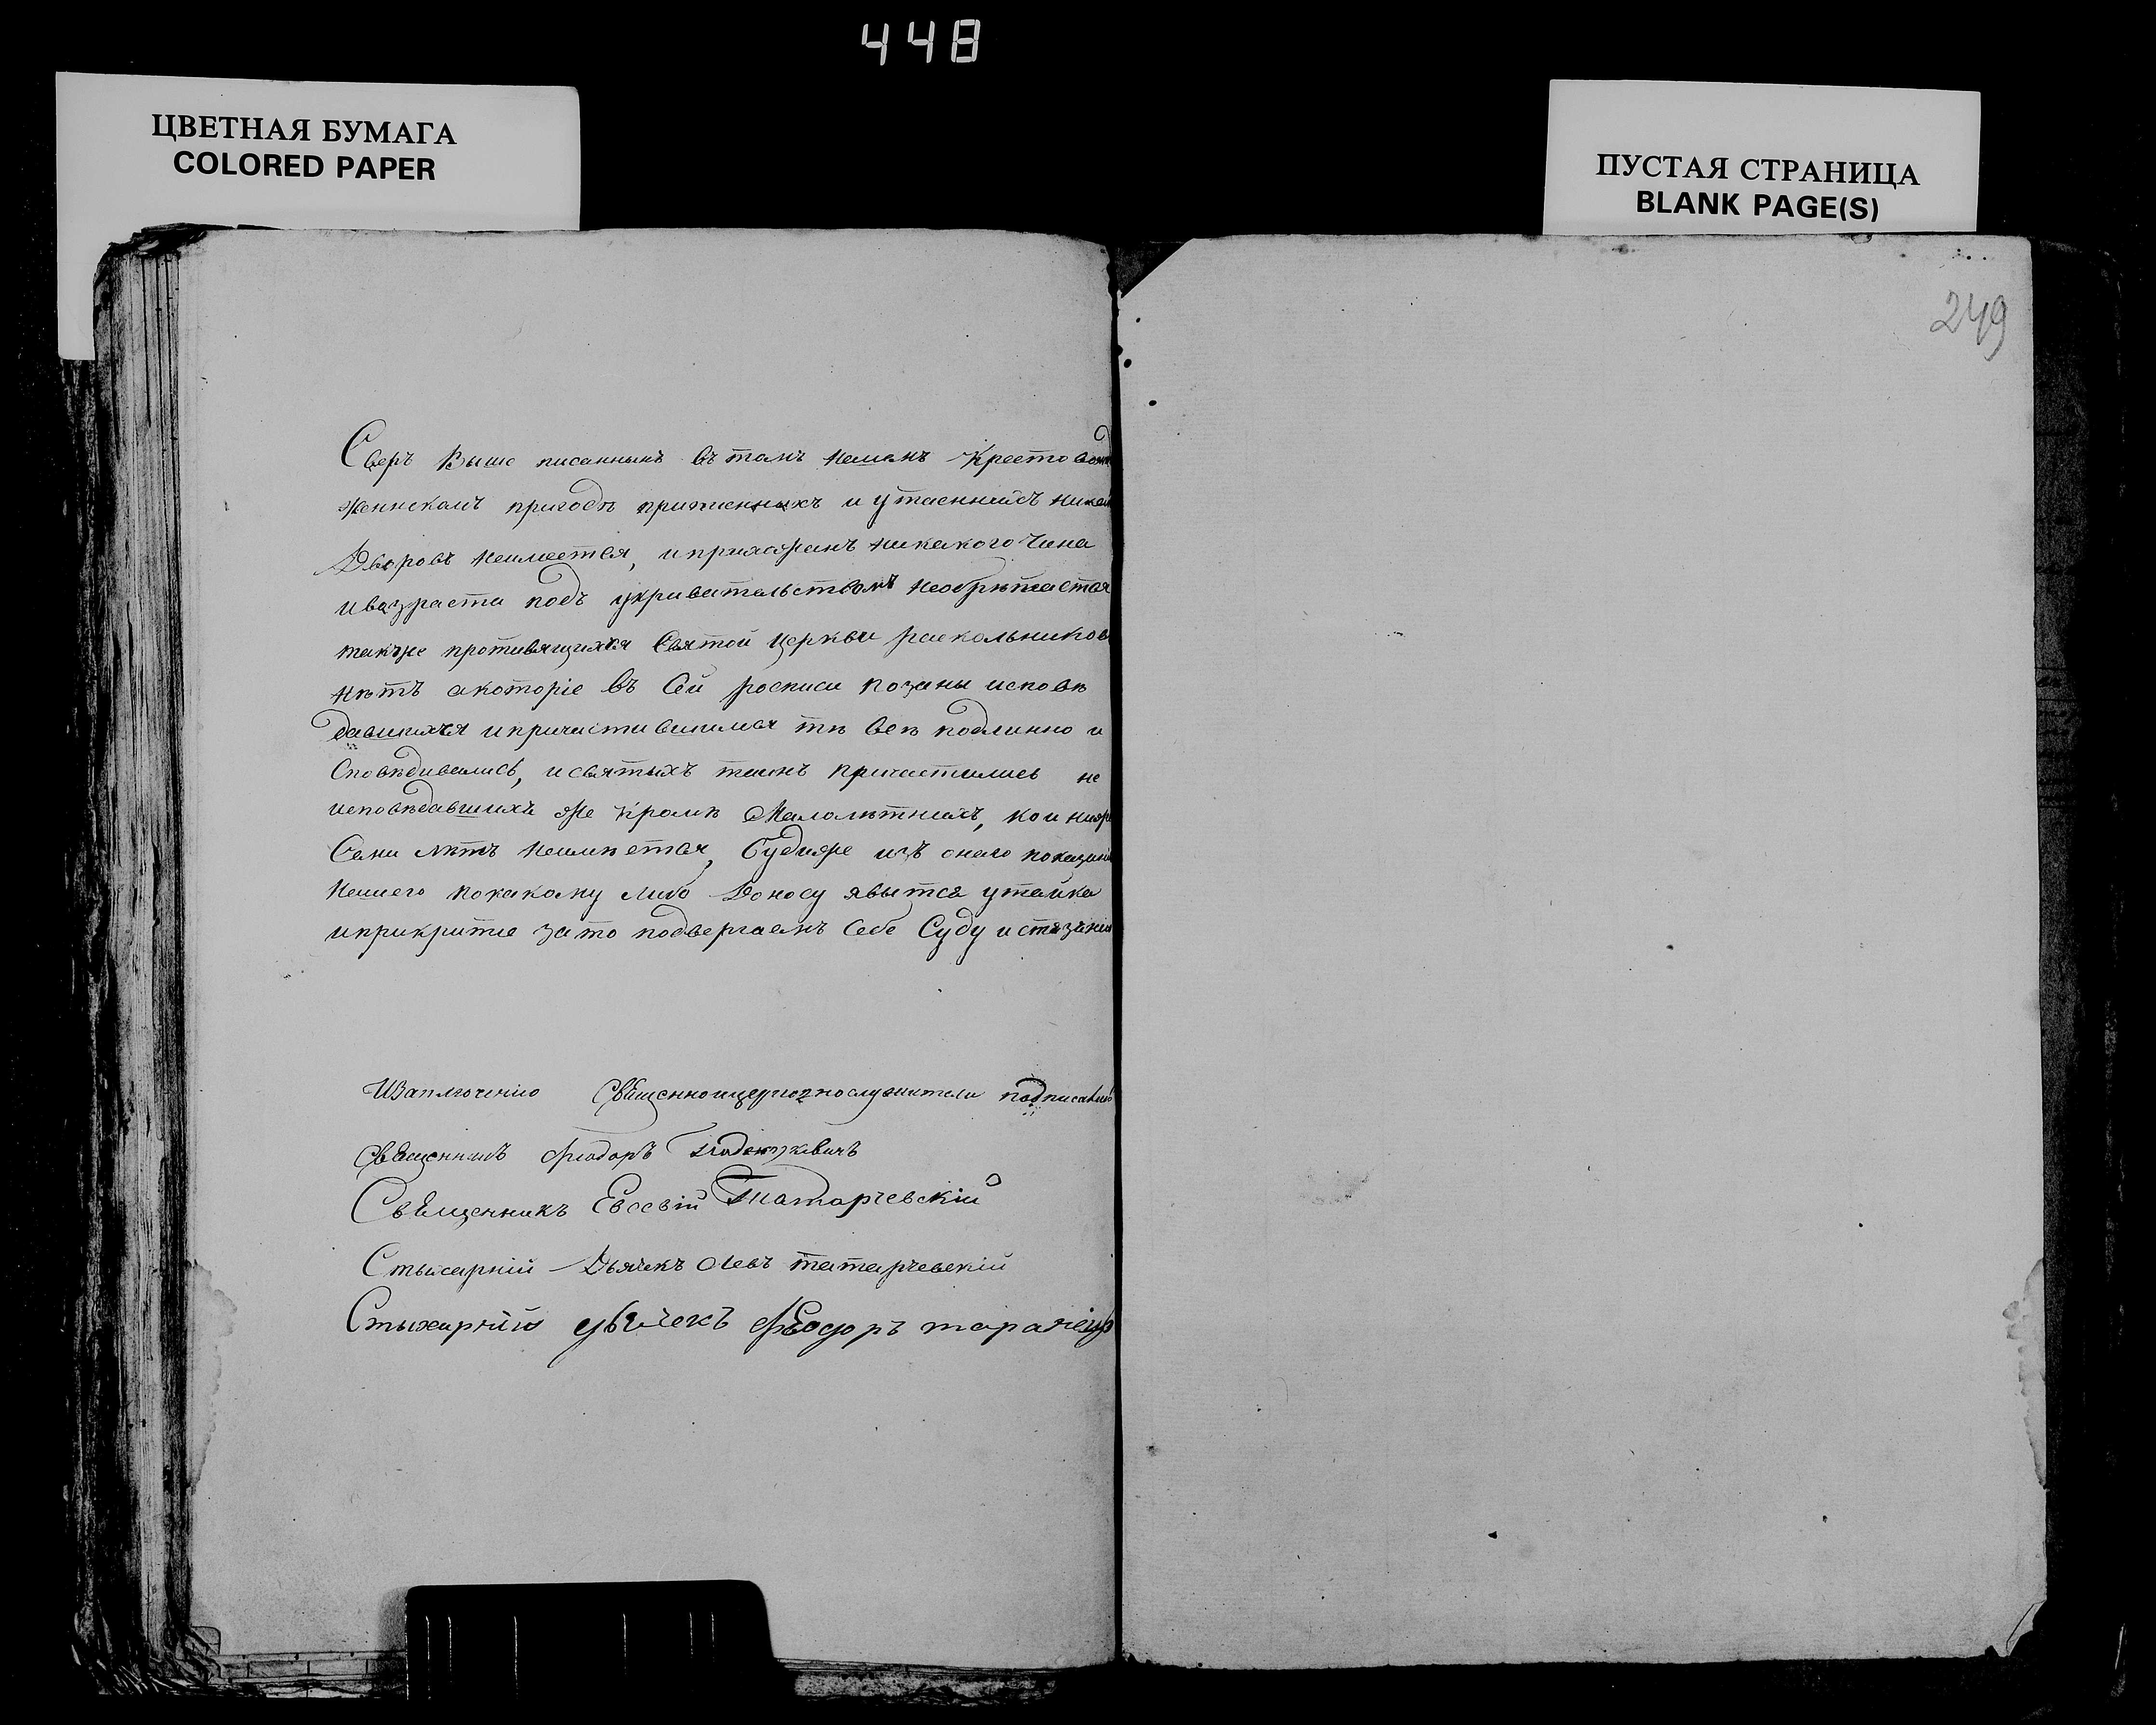 448
ЦВЕТНАЯ БУМАГА
COLORED PAPER
ПУСТАЯ СТРАНИЦА
BLANK PAGE(S)
249
Сверъ Выше писанныхъ въ томъ нашемъ Крестовоздви
женнскомъ приходѣ приписныхъ и утаенныхъ никак
Дворовъ неимеется, и прихожанъ никакого Чина
ивозраста подъ укривательствомъ необрѣтается
такъже противящихся Святой Церкви раскольников
нѣтъ а которіе въ Сей росписи показаны исповѣ
давшихся ипричастившимся тѣ всѣ подлинно и
Сповѣдивались, исвятыхъ таинъ причастились не
исповѣдавшихъ же кромѣ Малолѣтныхъ, кои ниже
Семи лѣтъ неимѣется, Будиже изъ онаго показания
нашего покакому либо Доносу явытся утайка
иприкритие зато подвергаемъ Себе Суду истязанию
Священноицерковнослужители подписались
Священникъ Феодоръ
Священникъ Евсевій Татарчевскій
Стыхарній Дьячекъ Левъ татарчевскій
Стыхарній дьячекъ Феодоръ